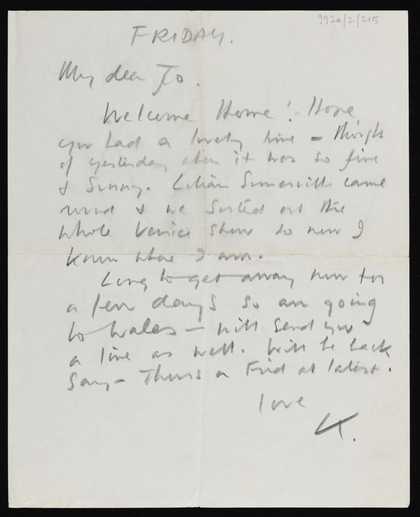 992a/2/215
FRIDAY.
My dear Jo.
Welcome Home! Hope
you had a lovely time – thought
of yesterday when it was so fine
& Sunny. Lilian Somerville came
round & we Sorted out the
whole Venice Show so now I
know where I am.
Long to get away now for
a few days so am going
to Wales – will send you
a line as well. Will be back
Say – Thurs or Frid at latest.
love
K.